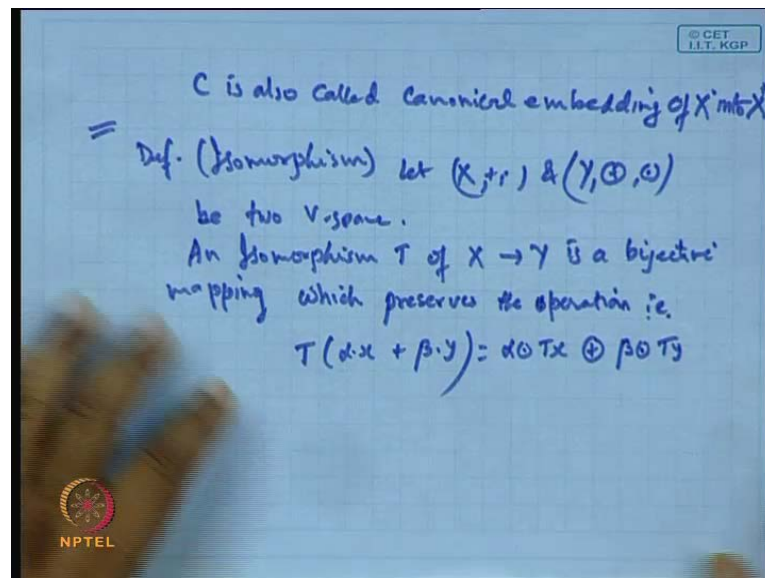 © CET
I.I.T. KGP
C is also called canonical embedding of X into X
Def. (Isomorphism) Let (X, +, ·) & (Y, ⊕, ⊙)
be two V. space.
An Isomorphism T of X → Y is a bijective
mapping which preserves the operation i.e.
T(α·x + β·y) = α⊙Tx ⊕ β⊙Ty
NPTEL